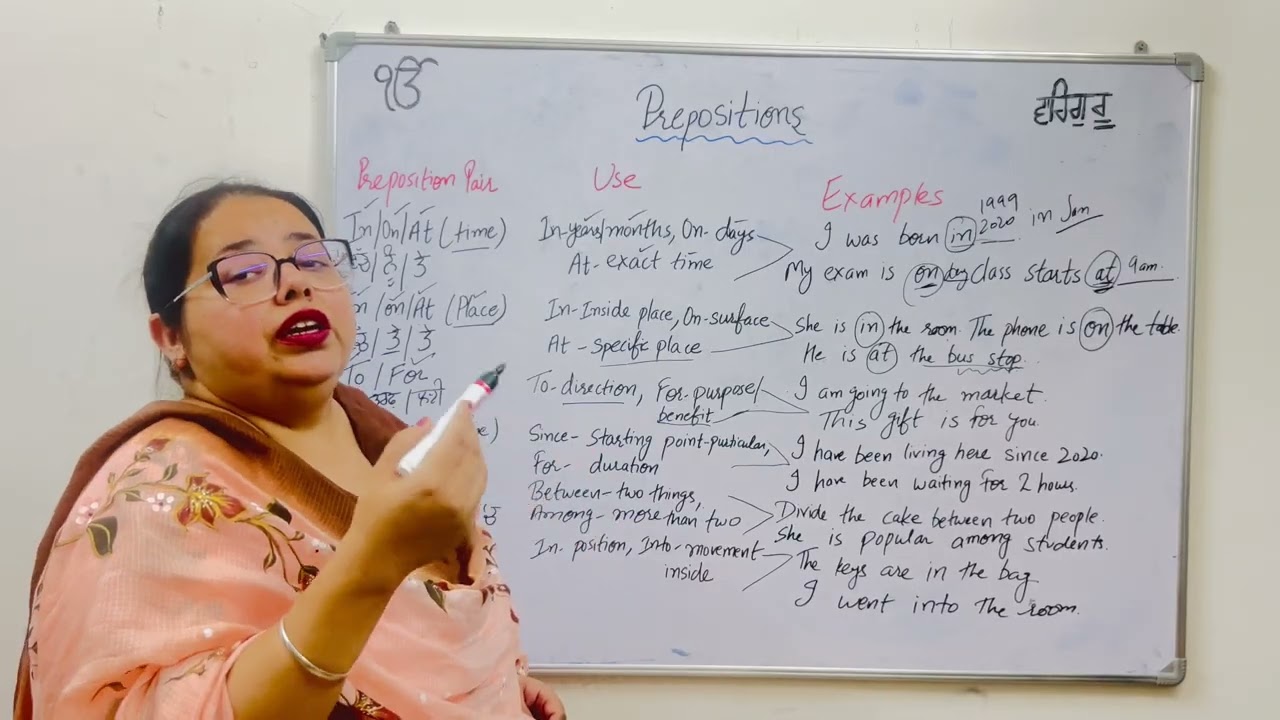 ੴ
Prepositions
ਵਹਿਗੁਰੂ
Preposition Pair
Use
Examples
In/On/At (time)
In-years/months, On-days
At-exact time
I was born in 1999 2020 in Jan
My exam is on class starts at 9am.
In/on/At (Place)
In-Inside place, On-surface
At-specific place
She is in the room. The phone is on the table.
He is at the bus stop.
To/For
To-direction, For-purpose/
benefit
I am going to the market.
This gift is for you.
Since-Starting point-particular,
For-duration
I have been living here since 2020.
I have been waiting for 2 hours.
Between-two things,
Among-more than two
Divide the cake between two people.
She is popular among students.
In. position, Into-movement
inside
The keys are in the bag
I went into the room.